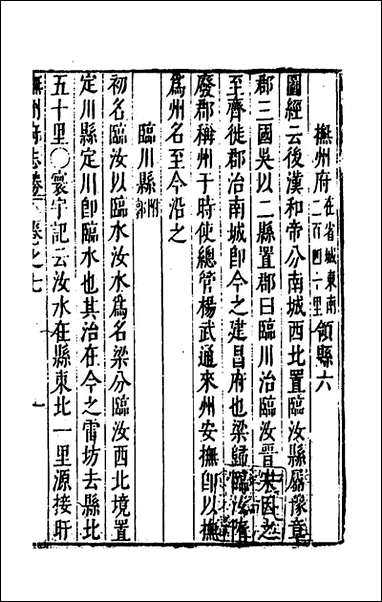 撫州府在省城東南二百四十里領縣六
圖經云後漢和帝分南城西北置臨汝縣屬豫章
郡三國吳以二縣置郡曰臨川治臨汝晉宋因之
至齊徙郡治南城卽今之建昌府也梁歸臨汝隋
廢郡稱州于時使總管楊武通來州安撫卽以撫
爲州名至今沿之
臨川縣附郭
初名臨汝以臨水汝水爲名梁分臨汝西北境置
定川縣定川卽臨水也其治在今之雷坊去縣北
五十里○寰宇記云汝水在縣東北一里源接盱
撫州府志 卷之七 一